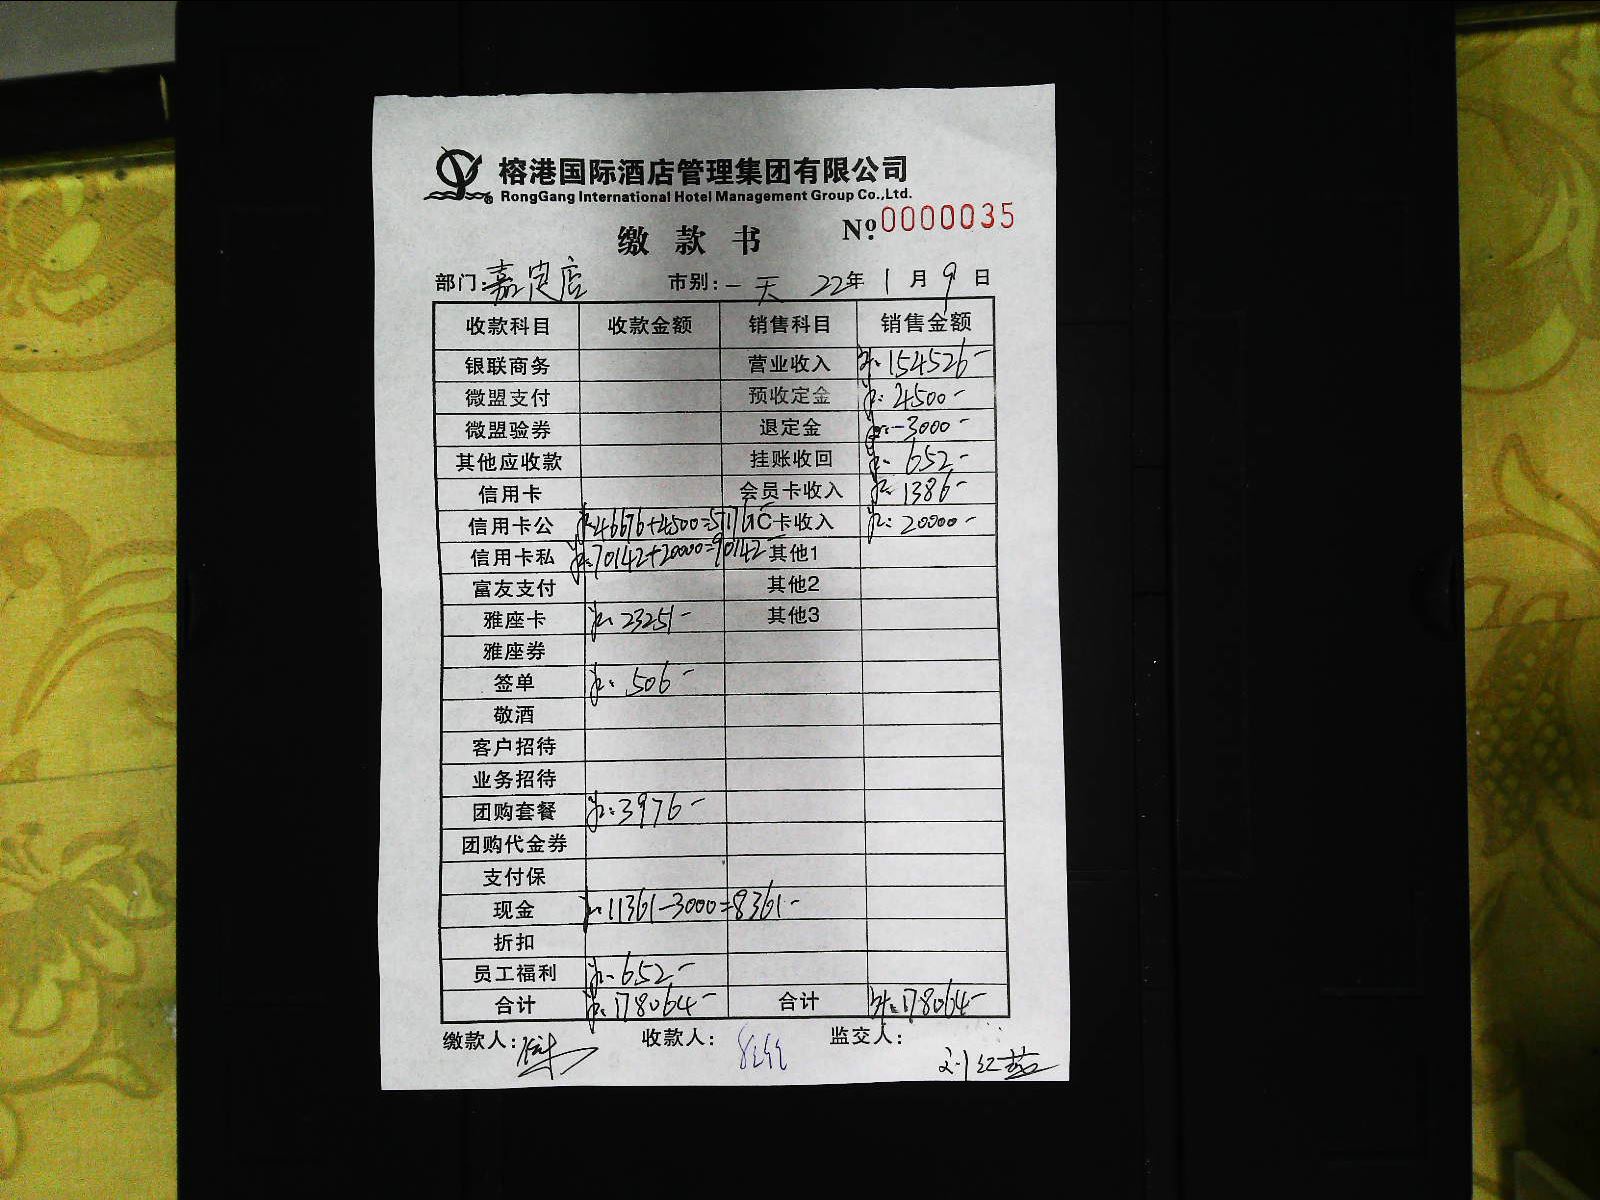 榕港国际酒店管理集团有限公司
RongGang International Hotel Management Group Co.,Ltd.
缴款书 No.0000035
部门:嘉定店 市别:一天 22年1月9日
收款科目 收款金额 销售科目 销售金额
银联商务 营业收入 154526-
微盟支付 预收定金 4500-
微盟验券 退定金 -3000-
其他应收款 挂账收回 652-
信用卡 会员卡收入 1386-
信用卡公 46676+4500=51176- IC卡收入 20000-
信用卡私 70142+20000=90142- 其他1
富友支付 其他2
雅座卡 23251- 其他3
雅座券
签单 506-
敬酒
客户招待
业务招待
团购套餐 3976-
团购代金券
支付保
现金 11361-3000=8361-
折扣
员工福利 652-
合计 178064- 合计 178064-
缴款人: 收款人: 监交人:
刘红燕